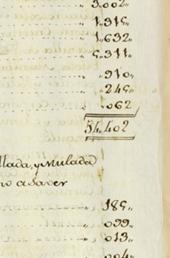 3.002
1.315
1.632
5.311
.310
.245
.062
54.402
llada, y Mulada
no asaver
.185
.099
.013
.004